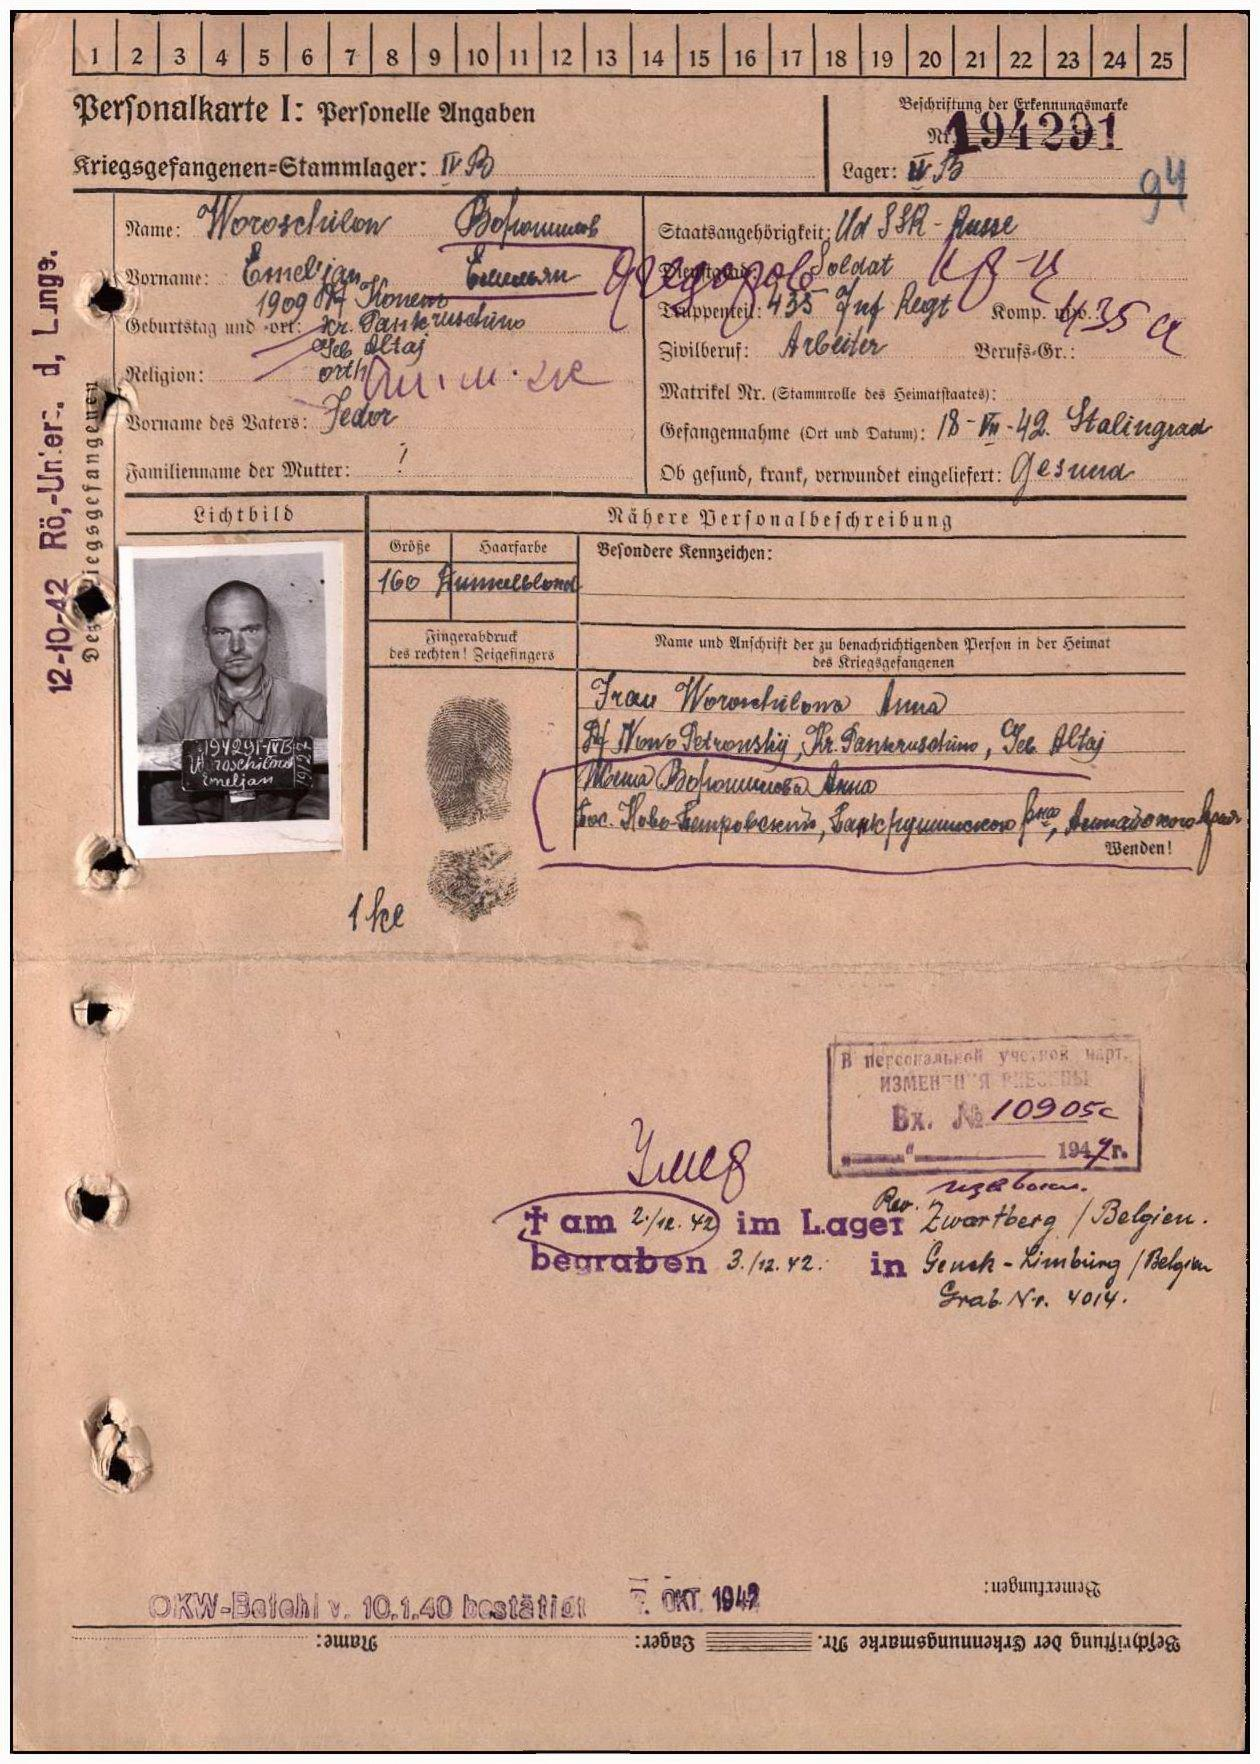 1 2 3 4 5 6 7 8 9 10 11 12 13 14 15 16 17 18 19 20 21 22 23 24 25
Personalkarte I: Personelle Angaben
Kriegsgefangenen=Stammlager: IV B
Beschriftung der Erkennungsmarke
Nr. 194291
Lager: IV B
94
Name: Woroschilow Ворошилов
Vorname: Emeljan Емельян Федоров
Geburtstag und =ort: 1909 Df Konew
Kr. Pankruschino
Geb. Altaj
Religion: orth
Vorname des Vaters: Fedor
Familienname der Mutter: !
Staatsangehörigkeit: Ud SSR - Russe
Dienstgrad: Soldat кр-ц
Truppenteil: 435 Inf Regt Komp. usw.: 435 сп
Zivilberuf: Arbeiter Berufs-Gr.:
Matrikel Nr. (Stammrolle des Heimatstaates):
Gefangennahme (Ort und Datum): 18-VIII-42. Stalingrad
Ob gesund, krank, verwundet eingeliefert: Gesund
12-10-42 Rö,-Unters. d, Lunge.
Des Kriegsgefangenen
Lichtbild
Nähere Personalbeschreibung
Größe Haarfarbe Besondere Kennzeichen:
160 Dunkelblond
Fingerabdruck
des rechten! Zeigefingers
Name und Anschrift der zu benachrichtigenden Person in der Heimat
des Kriegsgefangenen
Frau Woroschilowa Anna
Df Nowo Petrowskij, Kr. Pankruschino, Geb. Altaj
Жена Ворошилова Анна
Пос. Ново-Петровский, Панкрушинского р-на, Алтайского края
Wenden!
194291-IVB
Woroschilow
Emeljan
В персональной учетной карт.
ИЗМЕНЕНИЯ ВНЕСЕНЫ
Вх. № 10905с
„ “ 1947г.
Умер
† am 2./12. 42 im Lager Rev. Zwartberg / Belgien.
begraben 3./12. 42. in Genck - Limburg / Belgien
Grab. Nr. 4014.
OKW-Befehl v. 10.1.40 bestätigt 7. OKT. 1942
Bemerkungen:
Beschriftung der Erkennungsmarke Nr. Lager: Name: